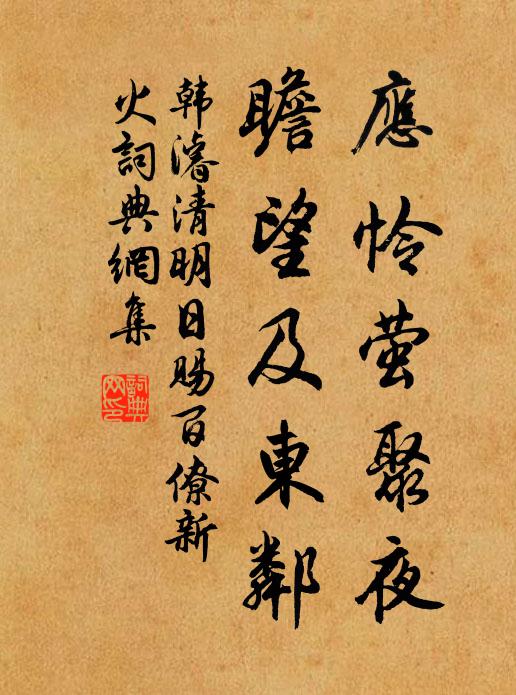 應怜萤聚夜
瞻望及東鄰
韩濬清明日賜百僚新
火詞典網集
詞典網印